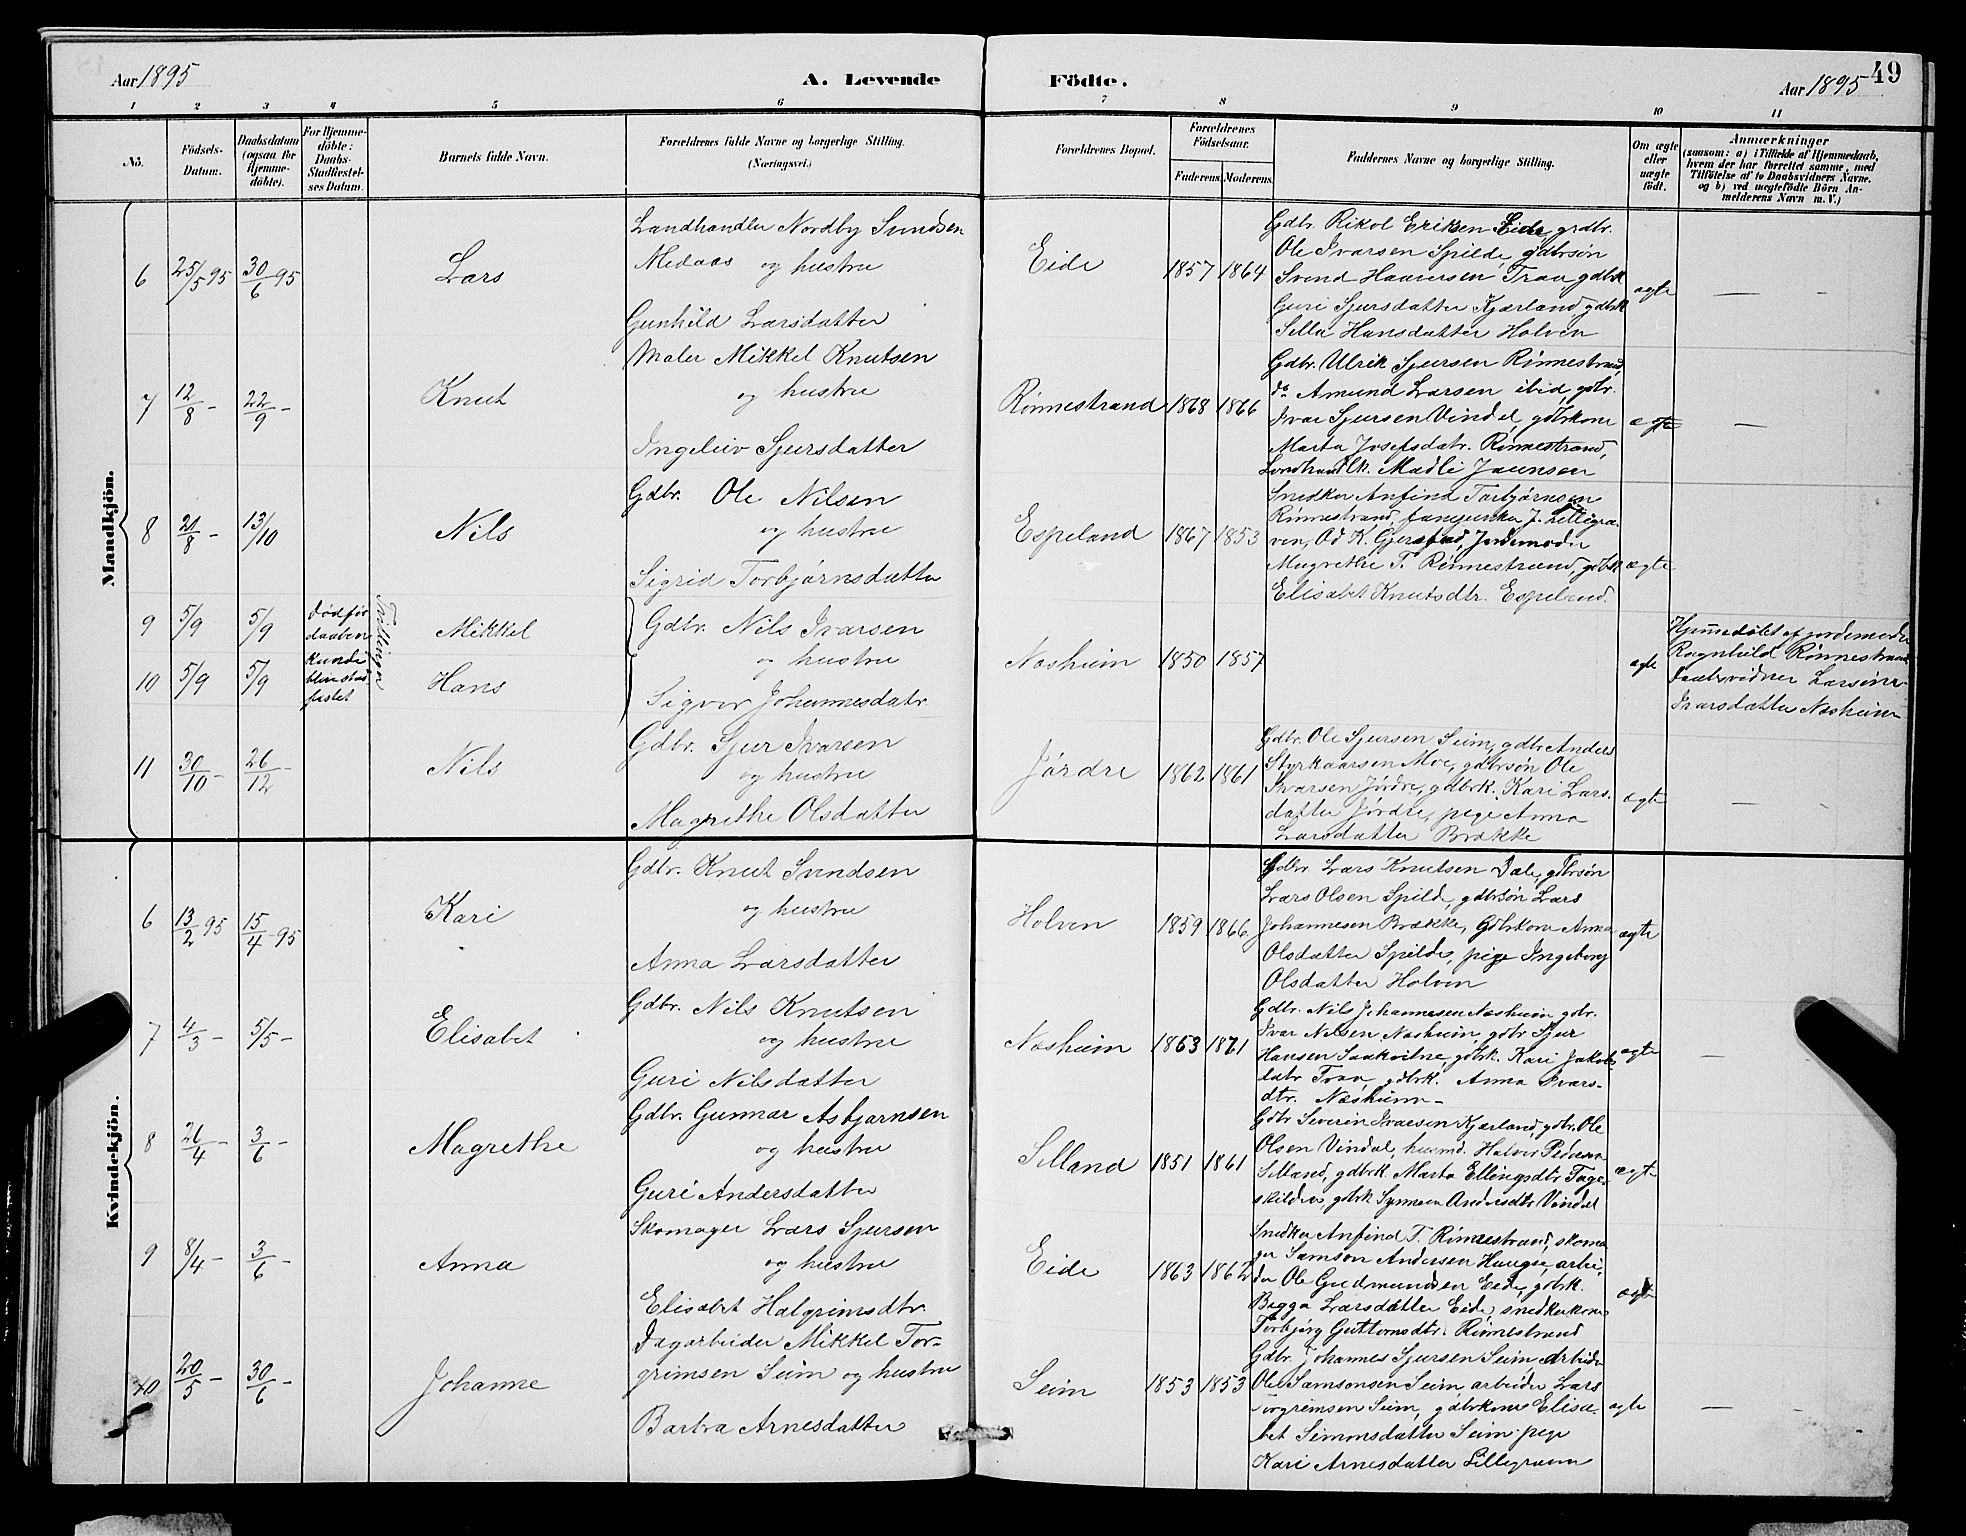 Aar 1895
A. Levende
Födte.
Aar 1895
49
1 2 3 4 5 6 7 8 9 10 11
No.
Födsels-
Datum.
Daabsdatum
(ogsaa for
Hjemme-
döbte).
For Hjemme-
döbte:
Daabs-
Stadfæstel-
ses Datum.
Barnets fulde Navn.
Forældrenes fulde Navne og borgerlige Stilling.
(Næringsvei.)
Forældrenes Bopæl.
Forældrenes
Födselsaar.
Faderens. Moderens.
Faddernes Navne og borgerlige Stilling.
Om ægte
eller
uægte
födt.
Anmærkninger
(saasom: a) i Tilfælde af Hjemmedaab,
hvem der har forrettet samme, med
Tilföielse af to Daabsvidners Navne,
og b) ved uægtefödte Börn An-
melderens Navn m. V.)
Mandkjön.
6 25/5 95 30/6 95
Lars
Landhandler Nordby Svendsen
Medaas og hustru
Gunhild Larsdatter
Eide
1857 1864
Gdbr. Rikol Eriksen Eide, grdbr.
Ole Ivarsen Spilde, gdbrsøn
Svend Haaversen Traa, gdbrk
Guri Sjursdatter Kjærland, gdbrk
Silla Hansdatter Holven
ægte
7 12/8 – 22/9 –
Knut
Maler Mikkel Knutsen
og hustru
Ingeleiv Sjursdatter
Rønnestrand 1868 1866
Gdbr. Ulrik Sjursen Rønnestrand,
do Amund Larsen ibid, gdbr.
Ivar Sjursen Vindal, gdbrkone
Marta Josefsdatr. Rønnestrand,
Landhandlk. Madli Jaunsen
ægte
8 21/8 – 13/10
Nils
Gdbr. Ole Nilsen
og hustru
Sigrid Torbjørnsdatter
Espeland 1867 1853
Snedker Anfind Torbjørnsen
Rønnestrand, J. Lillegra-
ven, Od K. Gjerstad, Jordemoder
Magrethe T. Rønnestrand, gdbrk
Elisabet Knutsdtr. Espeland.
ægte
9 5/9 5/9
Død før
daaben
kunde
blive stad-
fæstet
Tvillinger
Mikkel
10 5/9 5/9
Hans
Gdbr. Nils Ivarsen
og hustru
Sigvor Johannesdatr.
Næsheim 1850 1857
ægte
Hjemmedøbt af jordemoder
Ragnhild Rønnestrand
Daabsvidner Larsine
Ivarsdatter Næsheim
11 30/10 – 26/12 –
Nils
Gdbr. Sjur Ivarsen
og hustru
Magrethe Olsdatter
Jørdre
1862 1861
Gdbr. Ole Sjursen Seim, gdbr Anders
Styrkaarsen Moe, gdbrsøn Ole
Ivarsen Jørdre, gdbrk. Kari Lars-
datter Jørdre, pige Anna
Larsdatter Brække
ægte
Kvindekjön.
6 13/2 95 15/4 95
Kari
Gdbr. Knut Svendsen
og hustru
Anna Larsdatter
Holven
1859 1866.
Gdbr. Lars Knutsen Dale, gdbrsøn
Lars Olsen Spilde, gdbrsøn Lars
Johannesen Brække, Gdbrkone Anna
Olsdatter Spilde, pige Ingeborg
Olsdatter Holven
ægte
7 4/3 – 5/5 –
Elisabet
Gdbr. Nils Knutsen
og hustru
Guri Nilsdatter
Næsheim 1863 1871
Gdbr. Nils Johannesen Næsheim, gdbr.
Ivar Nilsen Næsheim, gdbr Sjur
Hansen Saakvitne, gdbrk. Kari Jakobs
datr Traa, gdbrk. Anna Ivars-
dtr. Næsheim –
ægte
8 26/4 – 3/6 –
Magrethe
Gdbr. Gunnar Asbjørnsen
og hustru
Guri Andersdatter
Silland 1851 1861
Gdbr Severin Ivarsen Kjærland, gdbr. Ole
Olsen Vindal, husmd. Halvor Pedersen
Silland, gdbrk Marta Ellingsdtr Tage-
skilden, gdbrk Synneva Andersdtr Vindal
ægte
9 8/4 – 3/6 –
Anna
Skomager Lars Sjursen
og hustru
Elisabet Halgrimsdtr.
Eide
1863 1862
Snedker Anfind T. Rønnestrand, skoma
ger Samson Andersen Haugse, arbei-
der Ole Gudmundsen Eide, gdbrk.
Bagga Larsdatter Eide, snedkerkone
Torbjørg Guttormsdtr. Rønnestrand
ægte
10 20/5 – 30/6 –
Johanne
Dagarbeider Mikkel Tor-
grimsen Seim og hustru
Barbra Arnesdatter
Seim
1853 1853
Gdbr. Johannes Sjursen Seim, Arbeider
Ole Samsonsen Seim, arbeider Lars
Torgrimsen Seim, gdbrkone Elisa-
bet Simonsdatter Seim, pige
Kari Arnesdatter Lillegraven
ægte